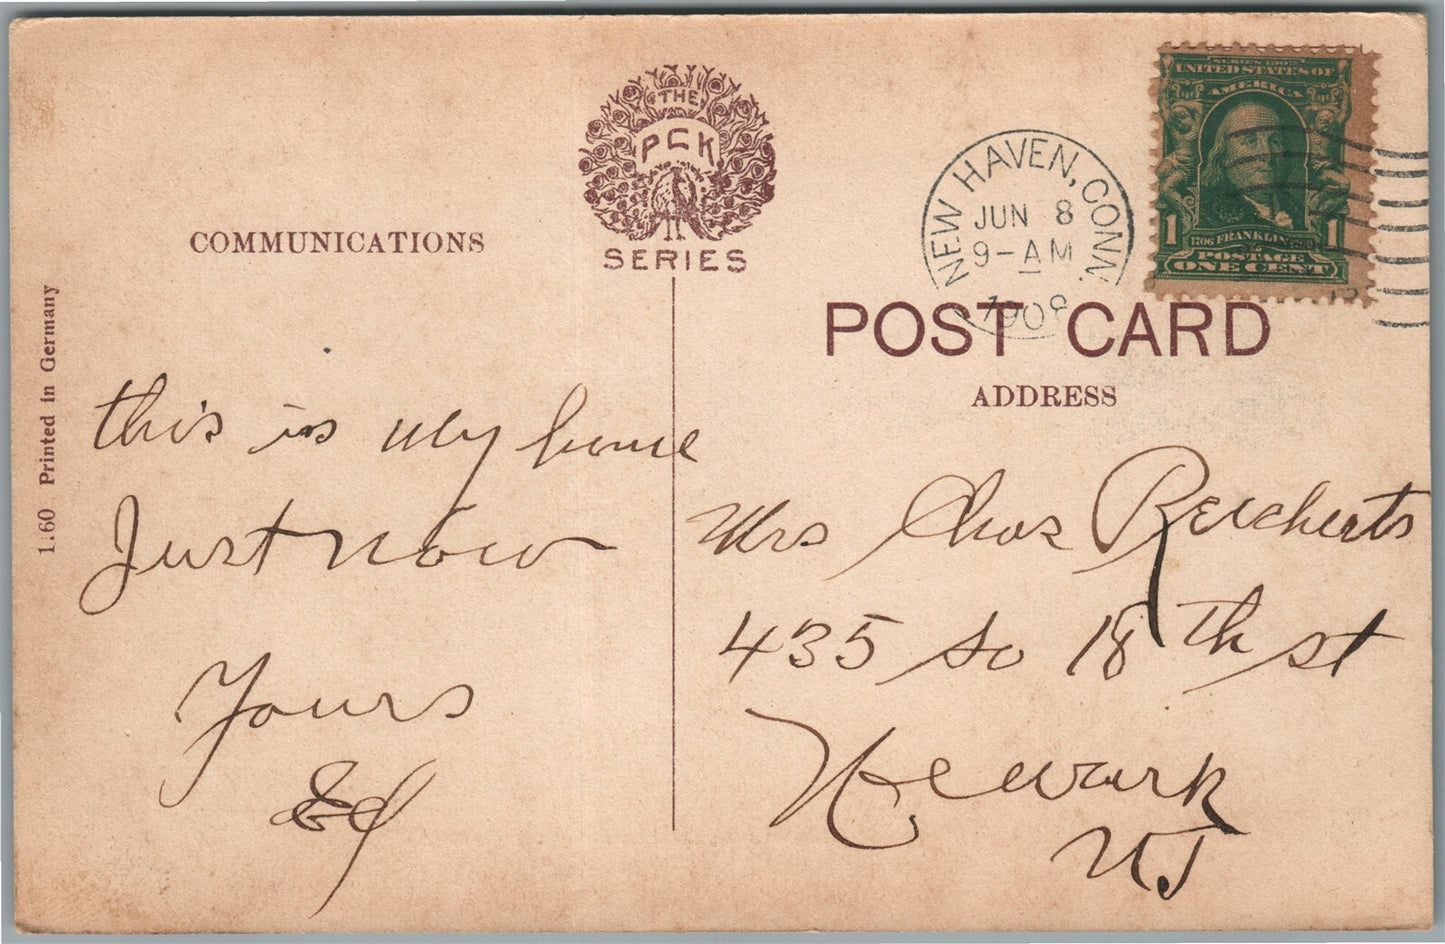 THE
PCK
SERIES
COMMUNICATIONS
1.60 Printed in Germany
this is my home
Just now
Yours
Ed
NEW HAVEN, CONN.
JUN 8
9-AM
1908
SERIES 1902
UNITED STATES OF
AMERICA
1 1
1706 FRANKLIN 1790
POSTAGE
ONE CENT
POST CARD
ADDRESS
Mrs Chas Reicherts
435 So 18th st
Newark
NJ